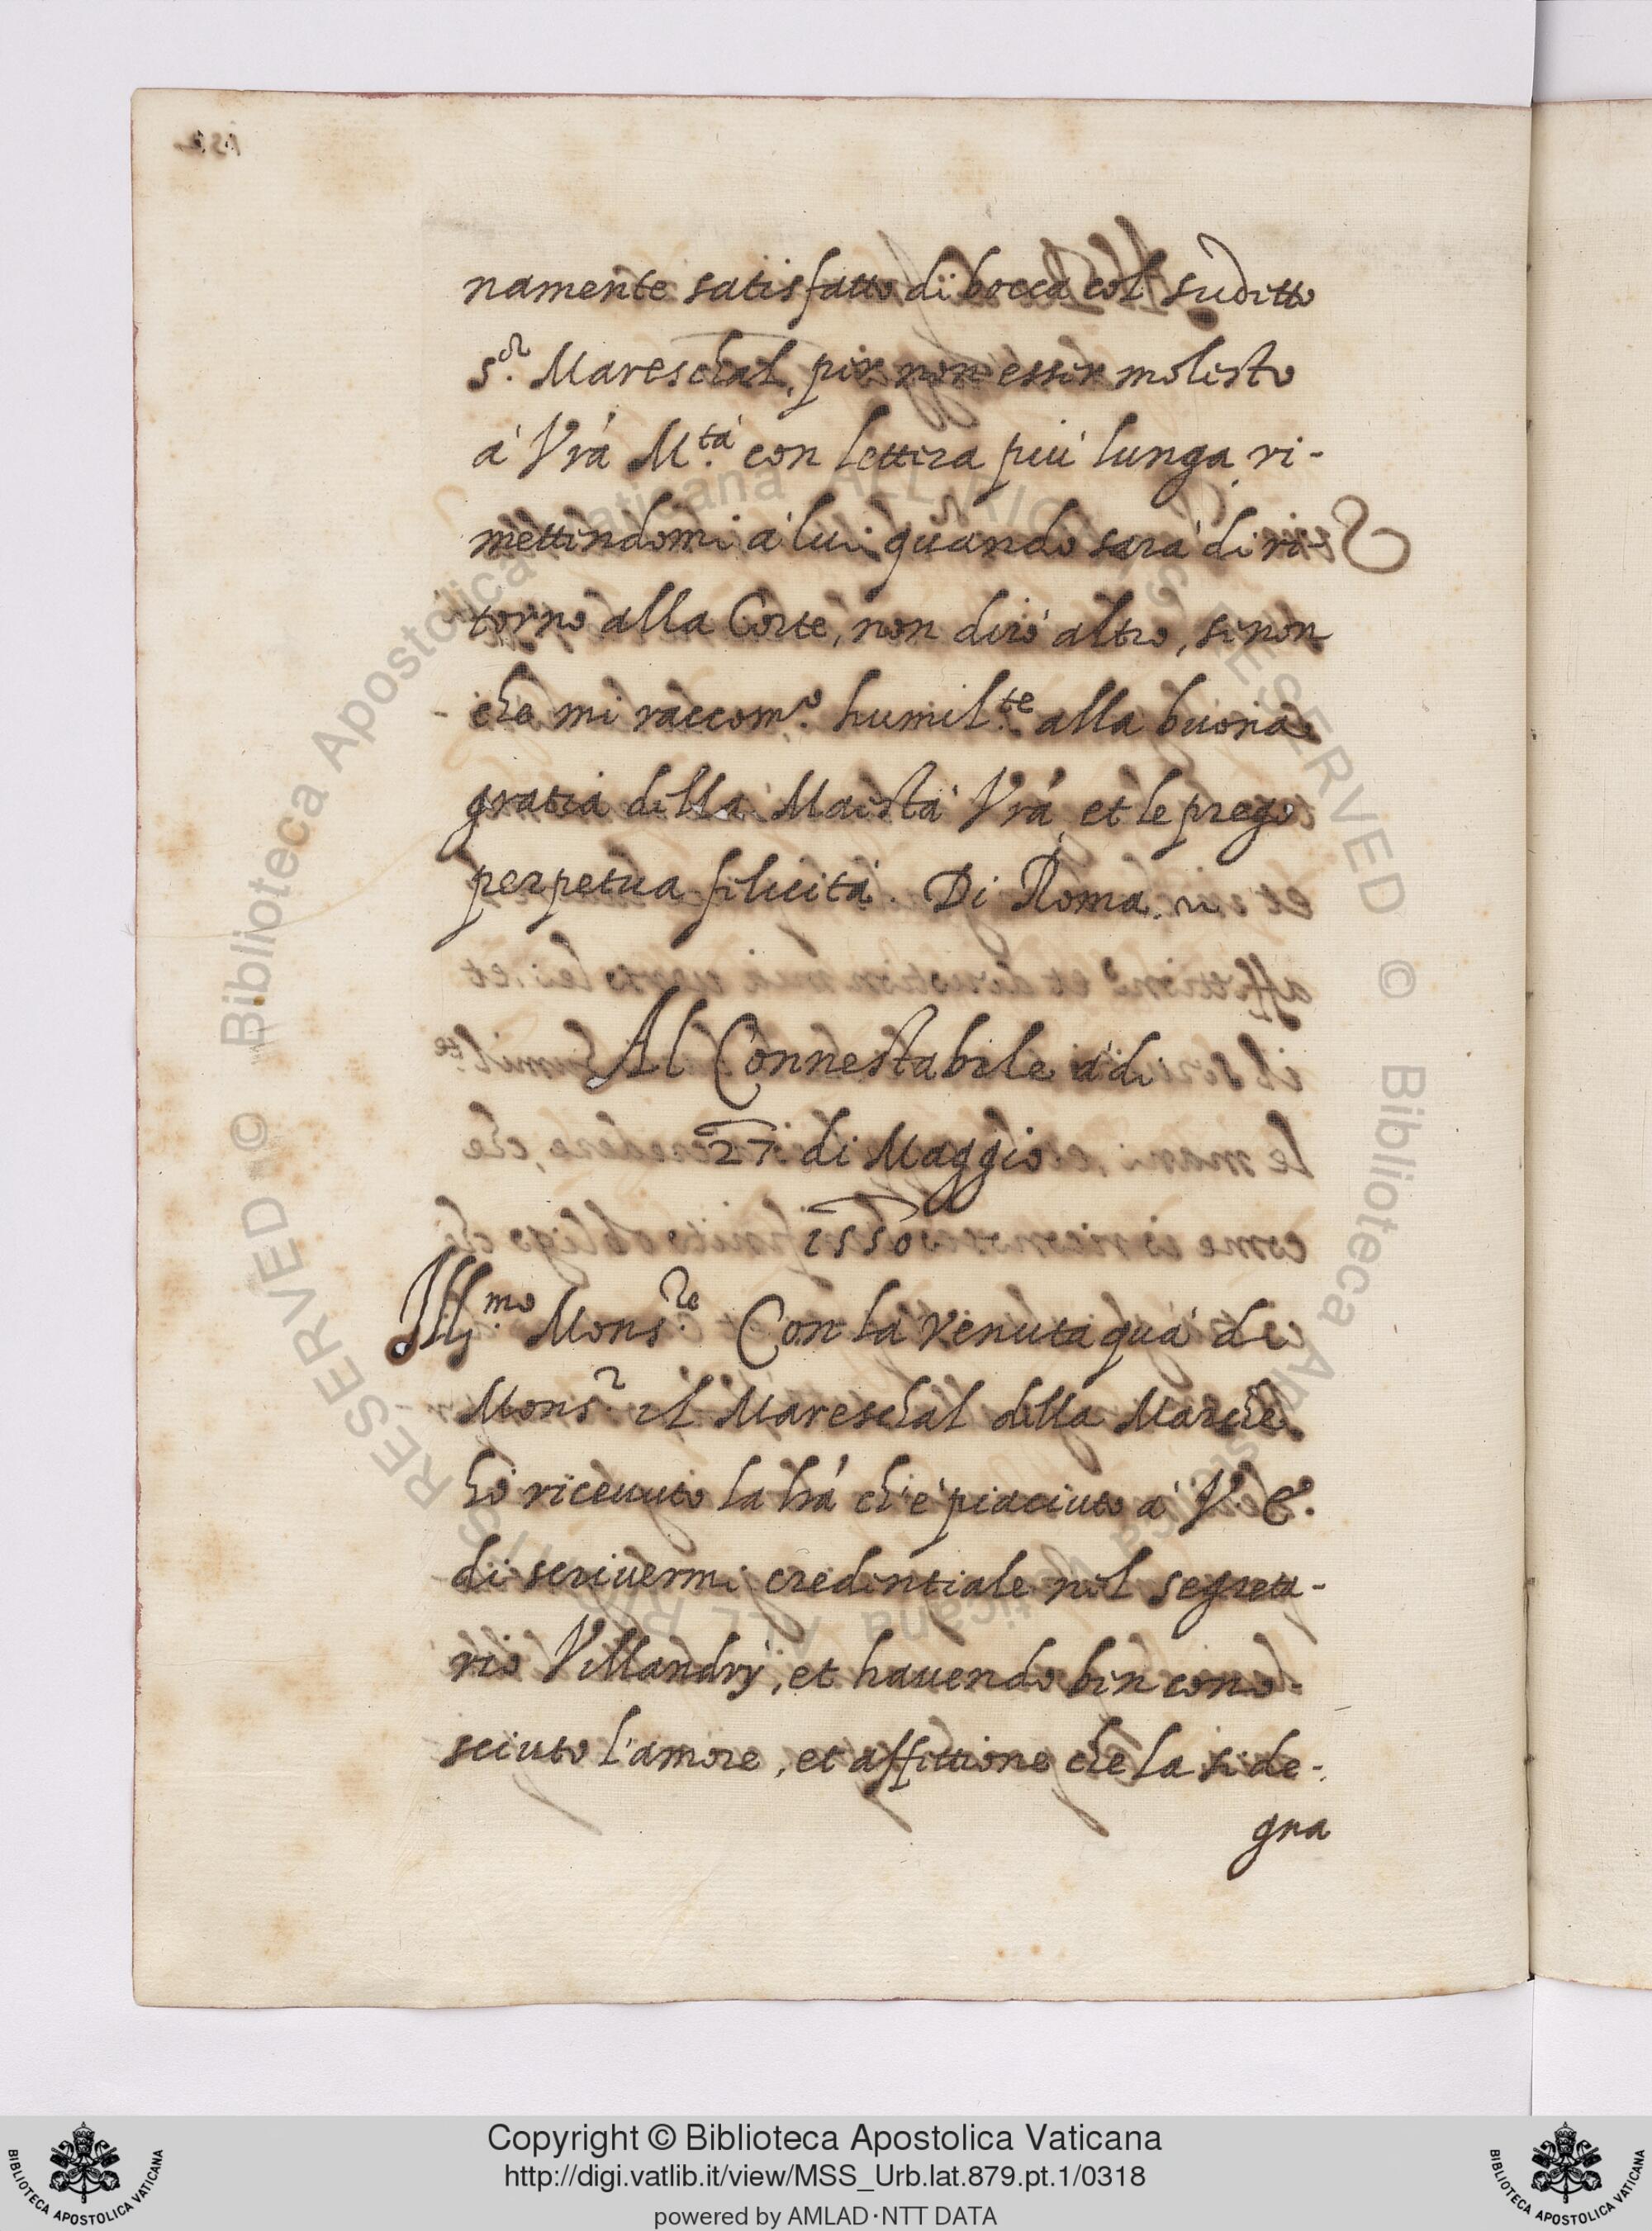 namente satisfatto di bocca col sudetto
S.or Mareschal, per non esser molesto
à Vrã M.tà con lettera più lunga ri-
mettendomi à lui quando sarà di ri-
torno alla Corte, non dirò altro, se non
che mi raccom.o humil.te alla buona
gratia della Maestà Vrã, et le prego
perpetua felicità. Di Roma.
Al Connestabile à di
27 di Maggio
1550
Ill.mo Mons.re Con la venuta quà de
Mons.r il Mareschal della Marche
hò ricevuto la lrã ch'è piaciuto à V. E.
di scrivermi credentiale nel segreta-
rio Villandrÿ, et havendo ben cono-
sciuto l'amore, et affettione che la si de-
gna
Copyright © Biblioteca Apostolica Vaticana
http://digi.vatlib.it/view/MSS_Urb.lat.879.pt.1/0318
powered by AMLAD·NTT DATA
BIBLIOTECA APOSTOLICA VATICANA
BIBLIOTECA APOSTOLICA VATICANA